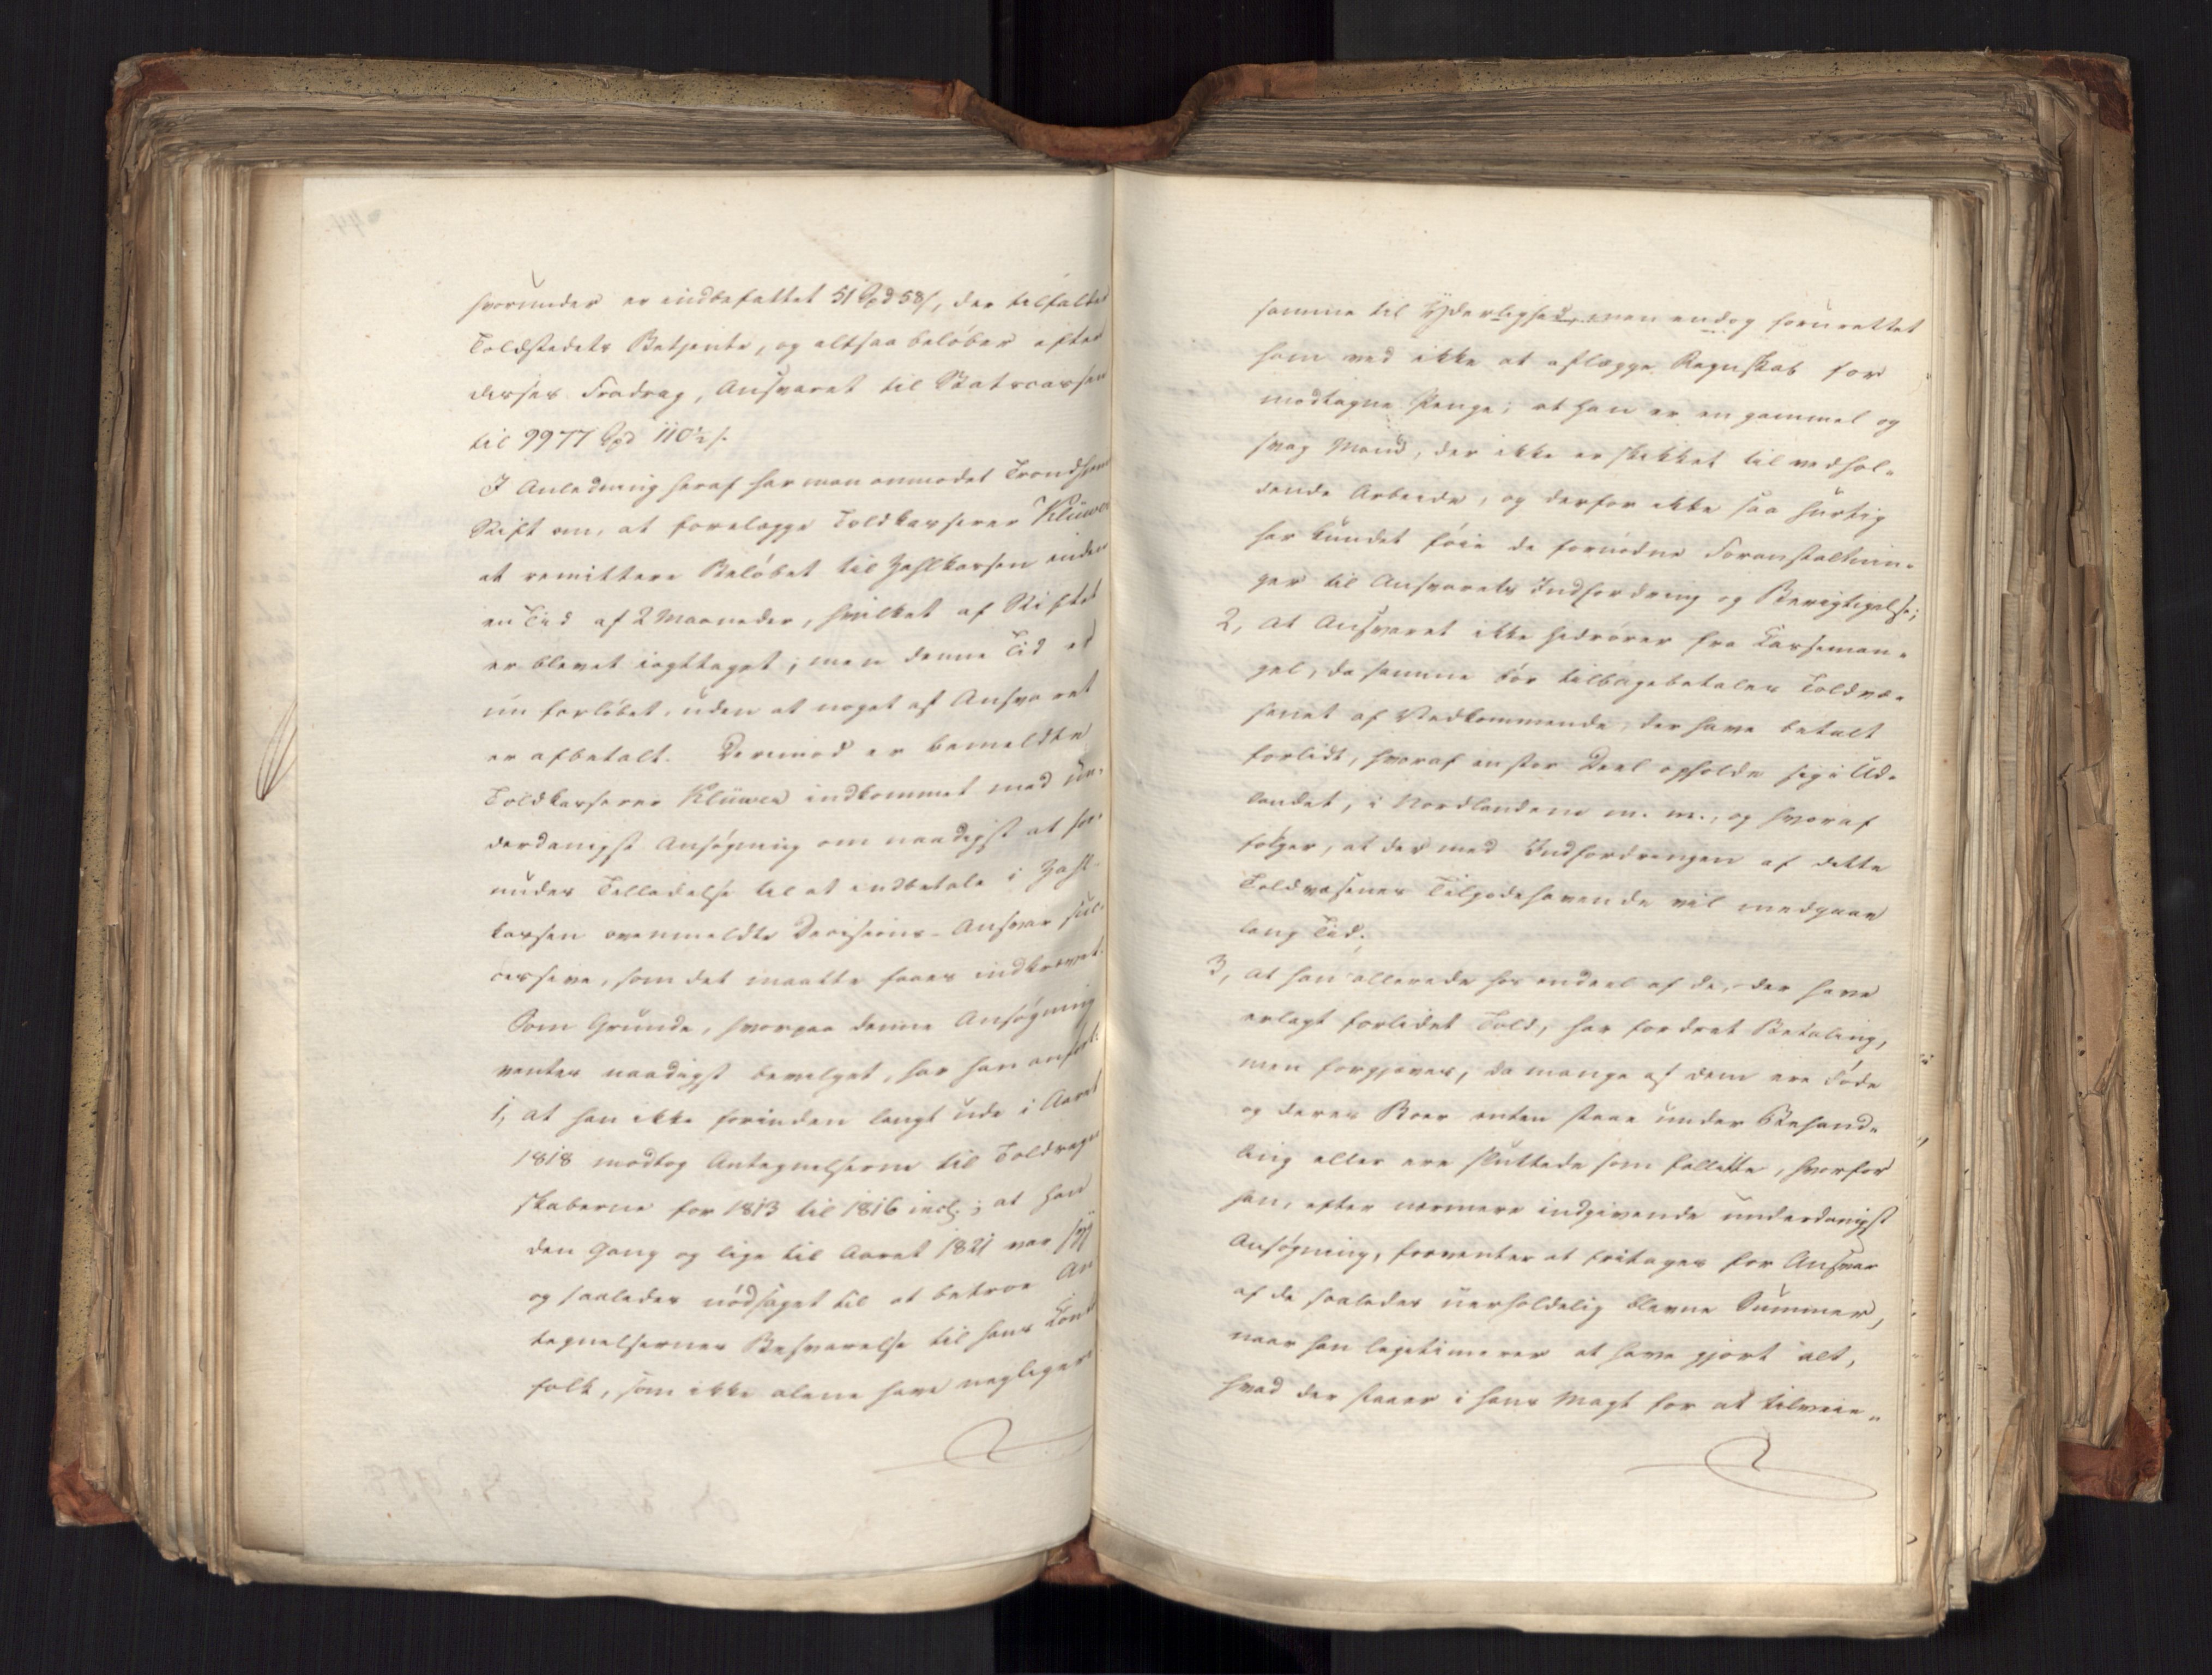 hvorunder er indbefattet 51 Spd 58 s, der tilfalder
Toldstedets Betjente, og altsaa beløber efter
disses Fradrag, Ansvaret til Statscassen
til 9977 Spd 110½ s.
I Anledning heraf har man anmodet Trondhjems
Stift om, at forelægge Toldkasserer Klüwer
at remittere Beløbet til Zahlkassen inden
en Tid af 2 Maaneder, hvilket af Stiftet
er blevet iagttaget; men denne Tid er
nu forløbet, uden at noget af Ansvaret
er afbetalt. Derimod er bemeldte
Toldkasserer Klüwer indkommet med un-
derdanigst Ansøgning om naadigst at for-
undes Tilladelse til at indbetale i Zahl-
kassen ovenmeldte Decisions-Ansvar suc-
cessive, som det maatte faaes indkrævet.
Som Grunde, hvorpaa denne Ansøgning
ventes naadigst bevilget, har han anført:
1, at han ikke forinden langt ude i Aaret
1818 modtog Antegnelserne til Toldregn
skaberne for 1813 til 1816 incl.; at han
den Gang og lige til Aaret 1821 var syg
og saaledes nødsaget til at betroe An
tegnelsernes Besvarelse til hans Cont
folk, som ikke alene have negligere
samme til Yderlighed, men endog forurettet
ham ved ikke at aflægge Regnskab for
modtagne Penge; at han er en gammel og
svag Mand, der ikke er skikket til vedhol-
dende Arbeide, og derfor ikke saa hurtig
har kundet føie de fornødne Foranstaltnin-
ger til Ansvarets Indfordring og Berigtigelse;
2, at Ansvaret ikke hedrører fra Casseman-
gel, da samme bør tilbagebetales Toldvæ-
senet af Vedkommende, der have betalt
forlidt, hvoraf en stor Deel opholde sig i Ud-
landet, i Nordlandene m. m., og hvoraf
følger, at der med Indfordringen af dette
Toldvæsenets Tilgodehavende vil medgaae
lang Tid;
3, at han allerede hos endeel af de, der have
erlagt forlidet Told, har fordret Betaling,
men forgjæves, da mange af dem ere døde
og deres Boer enten staae under Behand-
ling eller ere sluttede som fallitte, hvorfor
han, efter nærmere indgivende underdanigst
Ansøgning, forventer at fritages for Ansvar
af de saaledes uerholdelig blevne Summer,
naar han legitimerer at have gjort alt,
hvad der staaer i hans Magt for at tilveie-